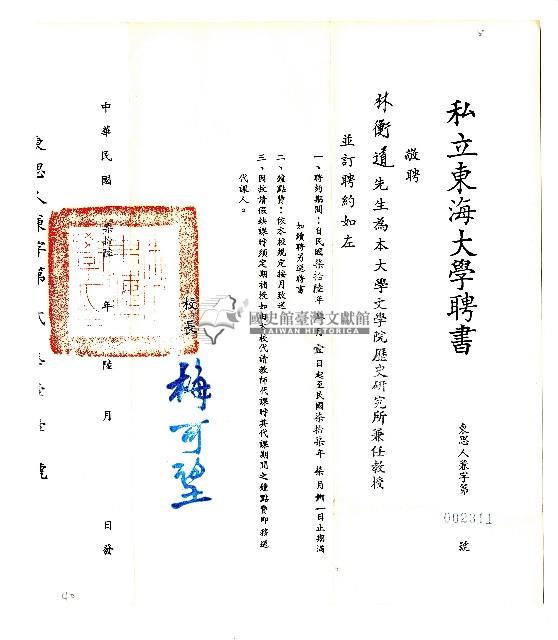 私立東海大學聘書
東思人兼字第
002311
號
敬聘
林衡道先生為本大學文學院歷史研究所兼任教授
並訂聘約如左
一、聘約期間：自民國柒拾陸年 月壹日起至民國柒拾柒年 柒月卅一日止期滿
如續聘另送聘書
二、鐘點費：依本校規定按月致送
三、因故請假缺課時須定期補授如由本校代請教師代課時其代課期間之鐘點費即移送
代課人。
校長
梅可望
中華民國 柒拾陸 年 陸 月 日發
東思人兼字第 號
國史館臺灣文獻館
TAIWAN HISTORICA